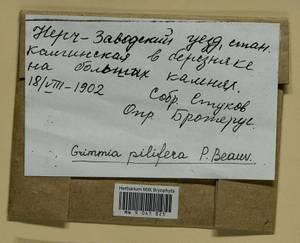 Нерч-Заводский уезд, стан.
Калгинская в березняке
на больших камнях.
18/VIII-1902
Собр. Стуков
Опр. Бротерус.
Grimmia pilifera P. Beauv.
Herbarium MW, Bryophyta